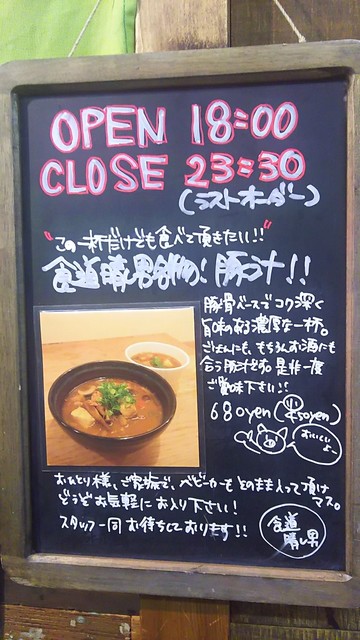 OPEN 18:00
CLOSE 23:30
(ラストオーダー)
"この一杯だけでも食べて頂きたい!!"
食道晴れ男名物! 豚汁!!
豚骨ベースでコク深く
旨味のある濃厚な一杯。
ごはんにも、もちろんお酒にも
合う豚汁です。是非一度
ご賞味下さい!!
680yen (小450yen)
おいしいよ〜
おひとり様、ご家族で、ベビーカーも そのまま入って頂け
マス。
どうぞお気軽に お入り下さい!
スタッフ一同 お待ちしております!!
食道
晴れ男